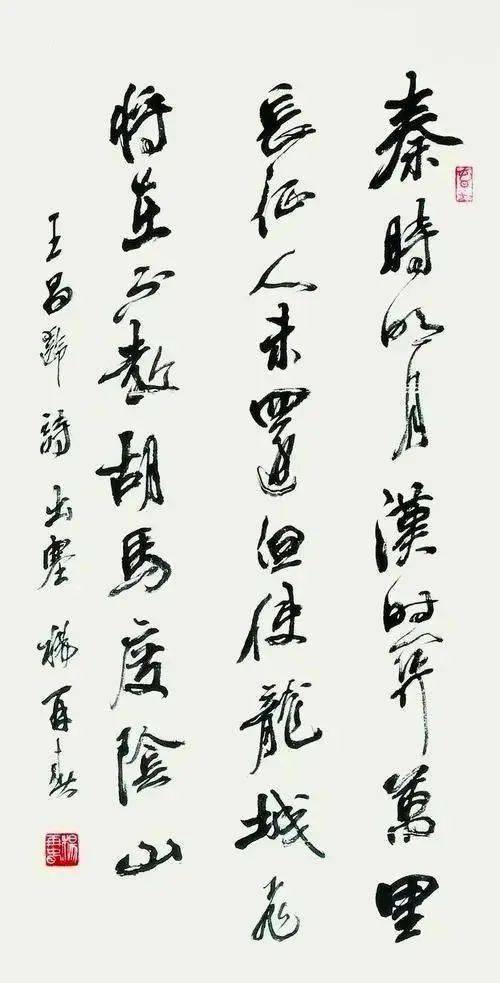 秦時明月漢時關萬里
長征人未還但使龍城飛
將在不教胡馬度陰山
王昌齡詩出塞 楊再春